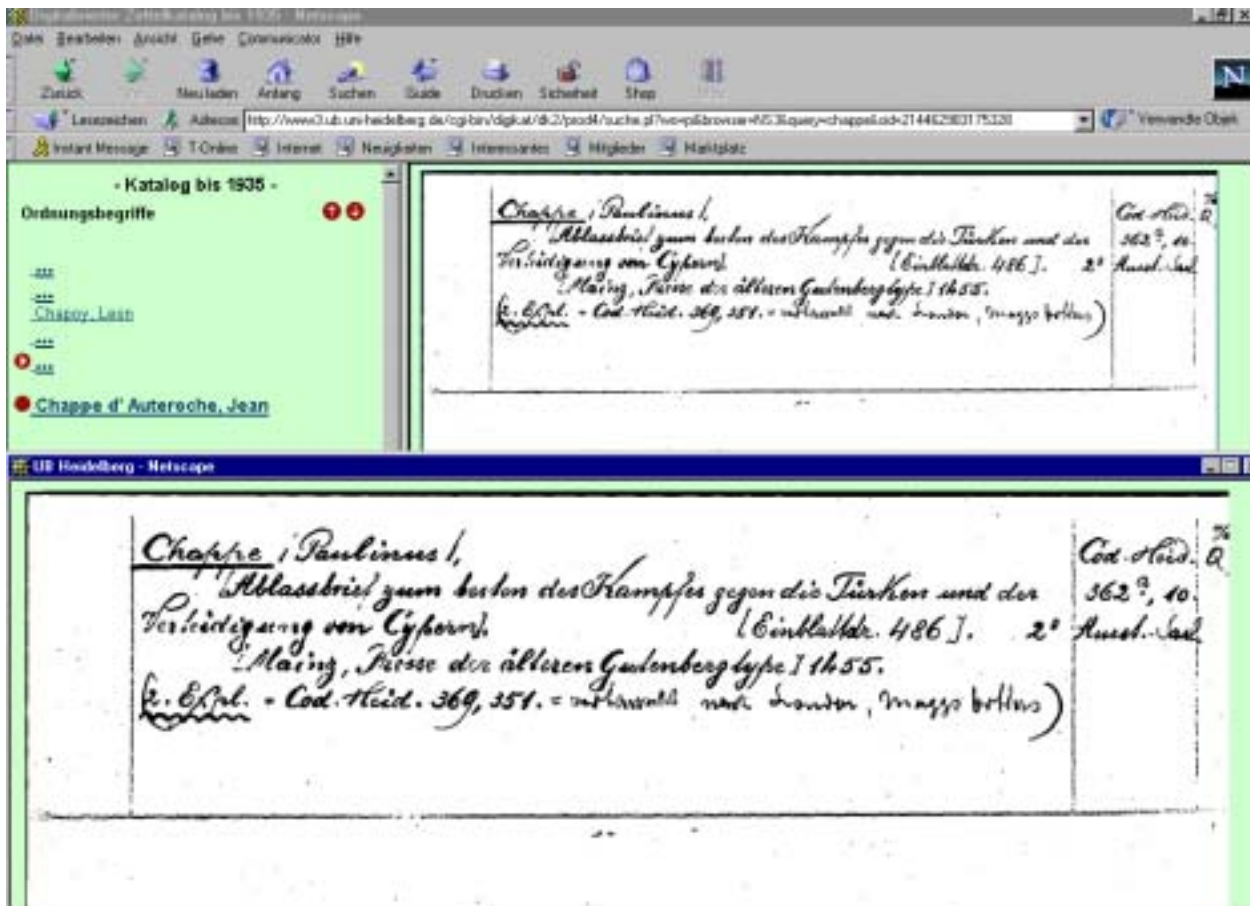 Digitalisierter Zettelkatalog bis 1935 - Netscape
Datei Bearbeiten Ansicht Gehe Communicator Hilfe
Zurück Neu laden Anfang Suchen Guide Drucken Sicherheit Shop
N
Lesezeichen Adresse Verwandte Objekte
Instant Message T-Online Internet Neuigkeiten Interessantes Mitglieder Marktplatz
- Katalog bis 1935 -
Ordnungsbegriffe
...
...
Chapoy, Leon
...
...
Chappe d' Auteroche, Jean
Chappe, Paulinus,
Ablassbrief zum besten des Kampfes gegen die Türken und der
Verteidigung von Cypern.
[Einblattdr. 486]. 2°
Mainz, Presse der älteren Gutenbergtype] 1455.
(2. Expl. = Cod. Heid. 369, 351. = nach London, Maggs Brothers)
Cod. Heid.
362ª, 10.
UB Heidelberg - Netscape
Chappe, Paulinus,
Ablassbrief zum besten des Kampfes gegen die Türken und der
Verteidigung von Cypern].
[Einblattdr. 486]. 2°
[Mainz, Presse der älteren Gutenbergtype] 1455.
(2. Expl. = Cod. Heid. 369, 351. = nach London, Maggs Brothers)
Cod. Heid.
362ª, 10.